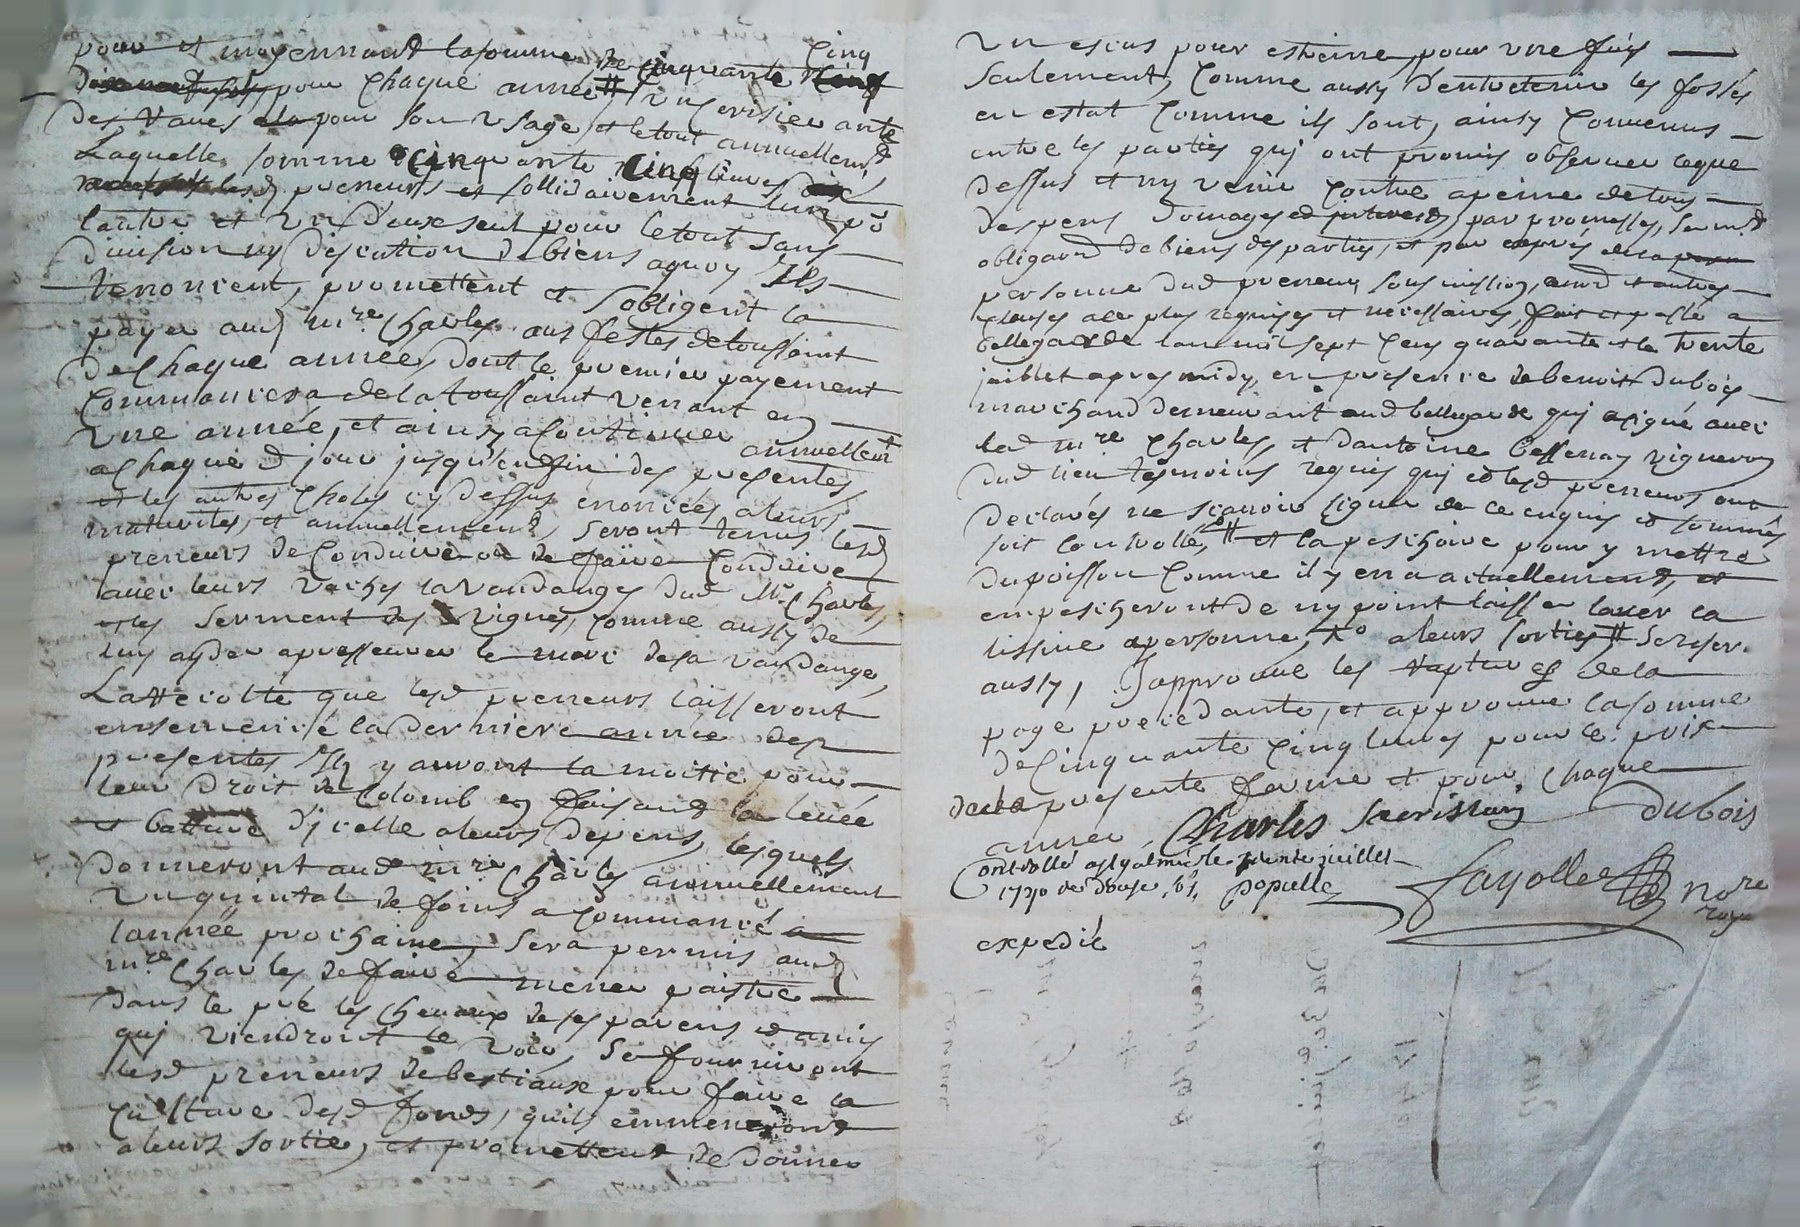 pour et moyennant la somme de cinquante cinq
pour chaque année # un cerisier ante
des Vaves pour son usage et le tout annuellemt
Laquelle somme cinquante cinq livres
lesd preneurs et sollidairement lun pō
lautre et un deux seul pour le tout sans
division ny discution de biens aquoy Ils
renoncent, promettent et sobligent la
payer aud mre Charles aux festes de toussaint
de chaque année, dont le premier payement
commancera de la toussaint venant en
une année, et ainsy a continuer annuellemt
a chaque d jour jusqu'en fin des presentes,
et les autres choses cy dessus enoncées a leurs
maturités, et annuellement, seront tenus lesd
preneurs de conduire ou de faire conduire
avec leurs vaches la vandange dud Mr Charles,
et les serment des vignes, comme aussy de
luy ayder a pressurer le marc de sa vandange,
La recolte que lesd preneurs laisseront
ensemencé la derniere année des
presentes Ils y auront la moitié pour
leur droit de Colomb en faisand la levée
et batture d'jcelle a leurs depens, lesquels
donneront aud mre Charles annuellement
un quintal de foins a commancé a
lannéé prochaine, sera permis aud
mre Charles de faire mener paistre
dans le pré les chevaux de ses parens et amis
quj viendront le voir, se fourniront
lesd preneurs de bestiaux pour faire la
cultture desd fonds, quils emmeneront
a leurs sortie, et promettent de donner
Un escus pour estreine, pour une fois
seulement, comme aussy d'entretenir les fossés
en estat comme ils sont, ainsy convenus
entre les parties quj ont promis observer ceque
dessus et ny venir contre apeine de tous
despens domages et interests, par promesses, sermt
obligaōn de biens des parties, et par exprés
personne dud preneur, soumission, et autres
clauses au plus requises et necessaires, fait et passé a
bellegarde lan mil sept cens quarante et le trente
juillet apres midy, en presence de benoit dubois
marchand demeurant aud bellegarde quj a signé avec
led mre Charles, et dantoine bessenay vigneron
dud lieu tesmoins requis quj et lesd preneurs ont
declarés ne sçavoir signer de ce enquis et sommés
soit controllé, # et la peschoire pour y mettre
du poisson comme il y en a actuellement, et
empescheront de ny point laisser laver la
lissive a personne, a leurs sorties #
aussy, J'approuve les ratures de la
page precedante, et approuve la somme
de cinquante cinq livres pour le prix
de la presente ferme et pour chaque
année Charles dubois
Controllé le trente juillet
1740 douze Fayolle nore
expedié